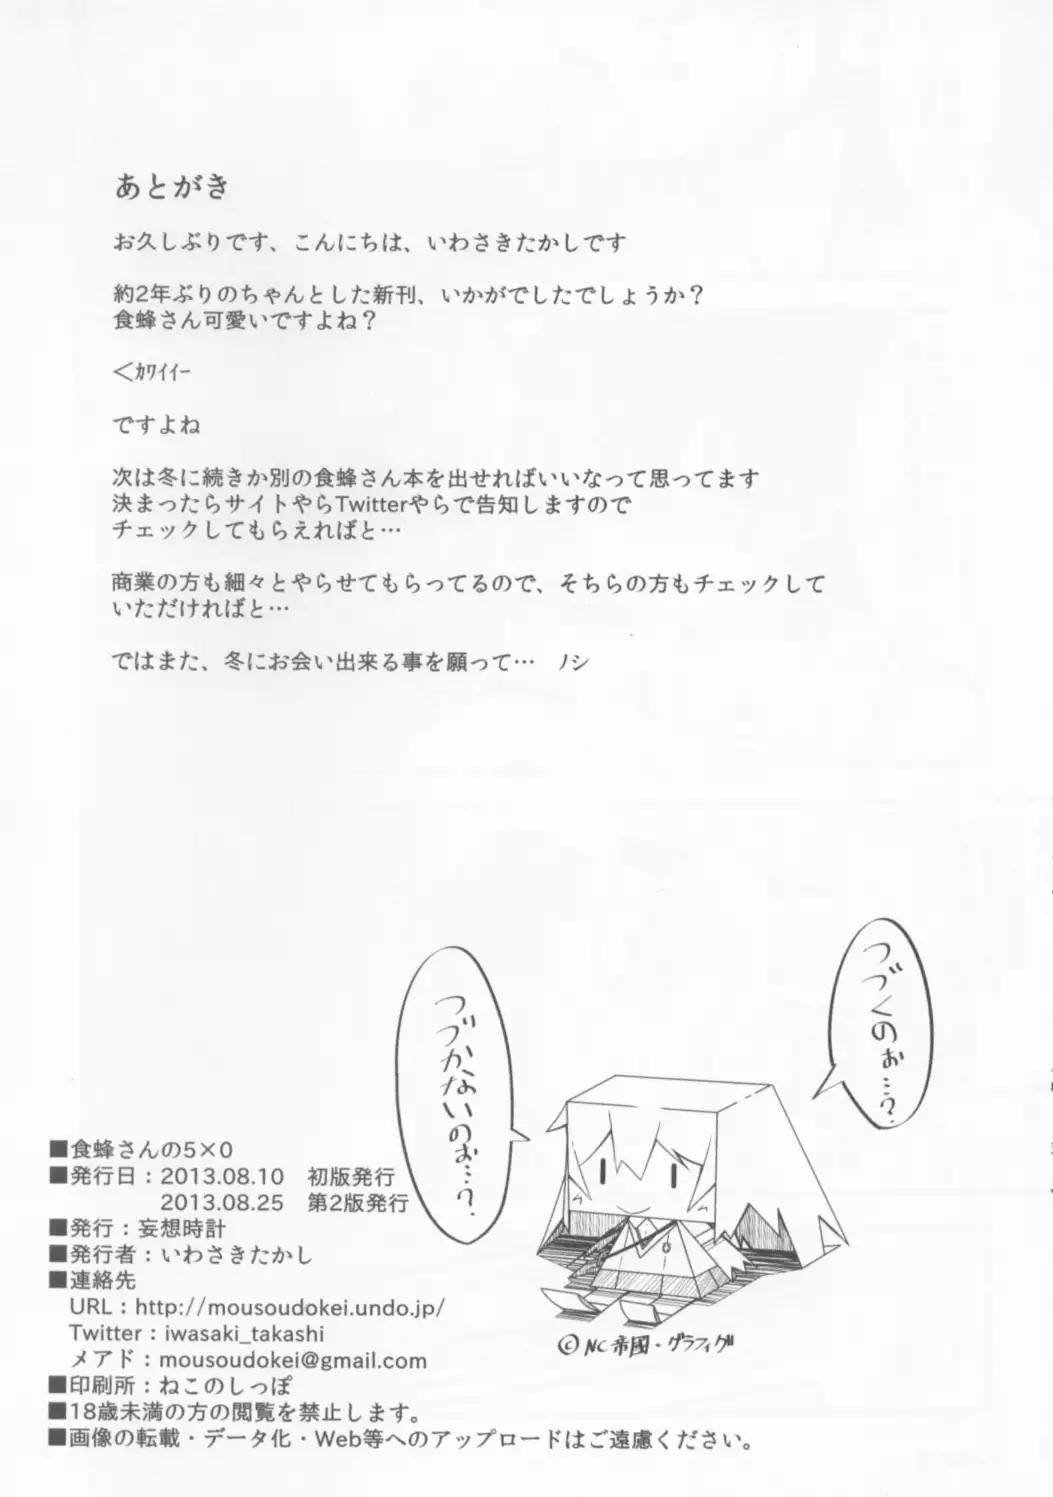 あとがき
お久しぶりです、こんにちは、いわさきたかしです
約2年ぶりのちゃんとした新刊、いかがでしたでしょうか？
食蜂さん可愛いですよね？
＜ｶﾜｲｲｰ
ですよね
次は冬に続きか別の食蜂さん本を出せればいいなって思ってます
決まったらサイトやらTwitterやらで告知しますので
チェックしてもらえればと…
商業の方も細々とやらせてもらってるので、そちらの方もチェックして
いただければと…
ではまた、冬にお会い出来る事を願って…　ﾉｼ
つづくのぉ…？
つづかないのぉ…？
©NC帝國・グラフィグ
■食蜂さんの5×0
■発行日：2013.08.10　初版発行
2013.08.25　第2版発行
■発行：妄想時計
■発行者：いわさきたかし
■連絡先
URL：http://mousoudokei.undo.jp/
Twitter：iwasaki_takashi
メアド：mousoudokei@gmail.com
■印刷所：ねこのしっぽ
■18歳未満の方の閲覧を禁止します。
■画像の転載・データ化・Web等へのアップロードはご遠慮ください。